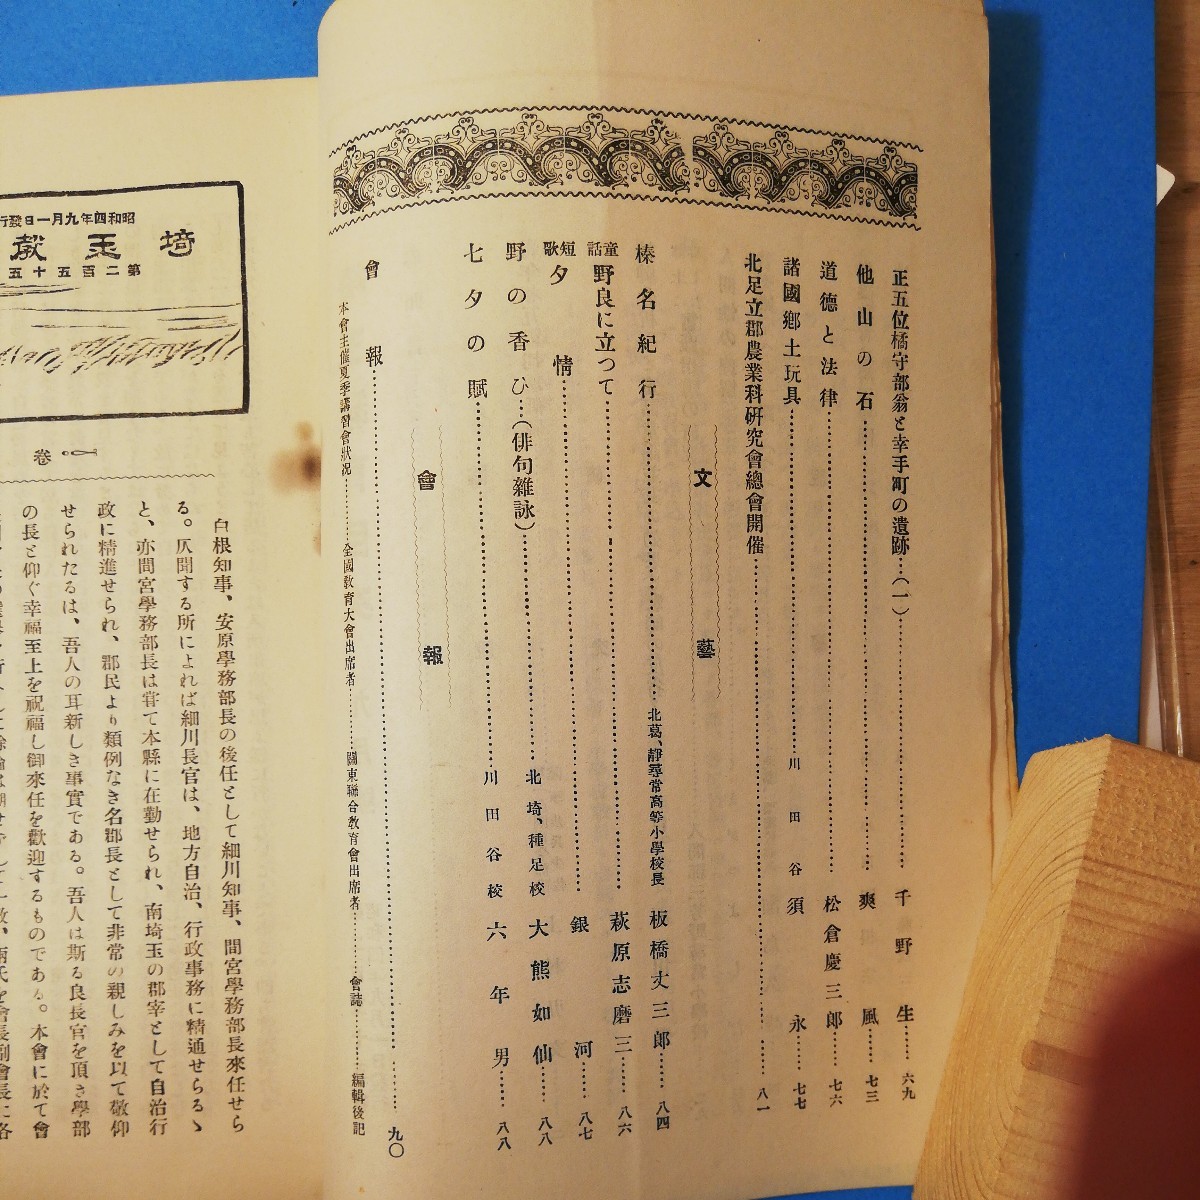 正五位橘守部翁と幸手町の遺跡…(一)……千野生……六九
他山の石……爽風……七三
道德と法律……松倉慶三郎……七六
諸國鄕土玩具……川田谷 須永……七七
北足立郡農業科硏究會總會開催……八一
文藝
榛名紀行……北葛、靜尋常高等小學校長 板橋丈三郎……八四
童話 野良に立つて……萩原志磨三……八六
短歌 夕情……銀河……八七
野の香ひ…(俳句雜詠)……北埼、種足校 大熊如仙……八八
七夕の賦……川田谷校 六年男……八八
會報
會報……九〇
本會主催夏季講習會狀況……全國敎育大會出席者……關東聯合敎育會出席者……會誌……編輯後記
昭和四年九月一日發行
埼玉敎
第二百五十五
卷
白根知事、安原學務部長の後任として細川知事、間宮學務部長來任せら
る。仄聞する所によれば細川長官は、地方自治、行政事務に精通せらるゝ
と、亦間宮學務部長は甞て本縣に在勤せられ、南埼玉の郡宰として自治行
政に精進せられ、郡民より類例なき名郡長として非常の親しみを以て敬仰
せられたるは、吾人の耳新しき事實である。吾人は斯る良長官を頂き學部
の長と仰ぐ幸福至上を祝福し御來任を歡迎するものである。本會に於て會